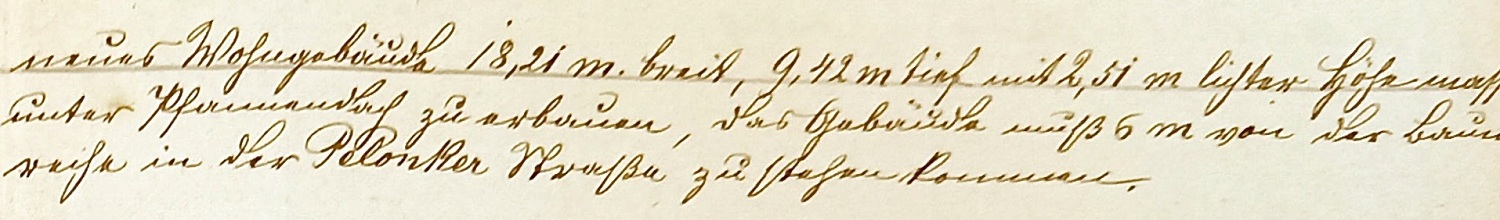 neues Wohngebäude 18,21 m. breit, 9,42 m tief mit 2,51 m lichter Höhe mass
unter Pfannendach zu erbauen, das Gebäude muß 6 m von der Baum
reihe in der Pelonker Straße zu stehen kommen.